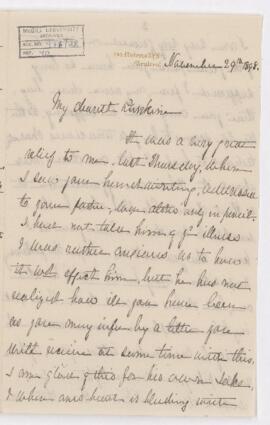 McGILL UNIVERSITY
ARCHIVES
ACC. NO.
REF.
Montreal.
November 29th 1898.
My dearest
It was a very great
relief to me, last Thursday, when
I saw your handwriting, addressed
to your father, even altho only in pencil.
I have not told him of yr illness
I was rather anxious as to how
it wd effect him, but he has not
realized how ill you have been
as you may infer by a letter you
will receive at same time with this.
I am glad of this for his own sake,
when